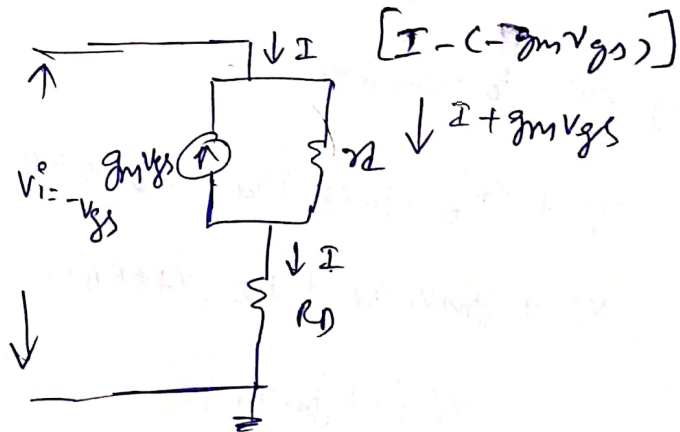 ↓ I
[I - (- gm vgs)]
↓ I + gm vgs
gm vgs
rd
vi = -vgs
↓ I
RD